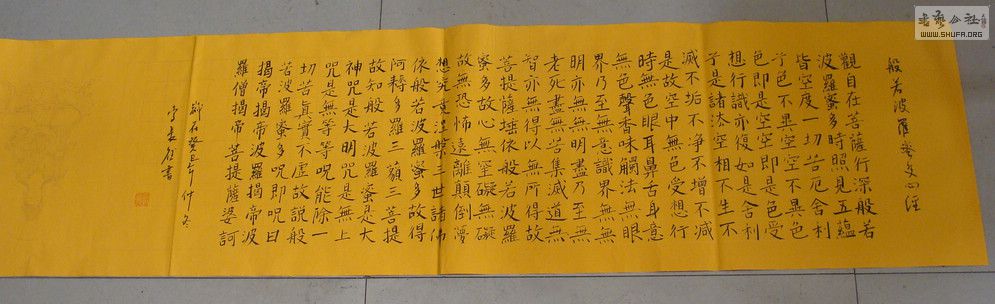 般若波羅蜜多心經
觀自在菩薩行深般若
波羅蜜多時照見五蘊
皆空度一切苦厄舍利
子色不異空空不異色
色即是空空即是色受
想行識亦復如是舍利
子是諸法空相不生不
滅不垢不淨不增不減
是故空中無色受想行
時無色眼耳鼻舌身意
無色聲香味觸法無眼
界乃至無意識界無無
明亦無無明盡乃至無
老死盡無苦集滅道無
智亦無得以無所得故
菩提薩埵依般若波羅
蜜多故心無罣礙無礙
故無恐怖遠離顛倒夢
想究竟涅槃三世諸佛
依般若波羅蜜多故得
阿耨多羅三藐三菩提
故知般若波羅蜜是大
神咒是大明咒是無上
咒是無等等咒能除一
切苦真實不虛故說般
若波羅蜜多咒即咒曰
揭帝揭帝波羅揭帝波
羅僧揭帝菩提薩婆訶
癸巳年仲冬
書
書藝公社
WWW.SHUFA.ORG